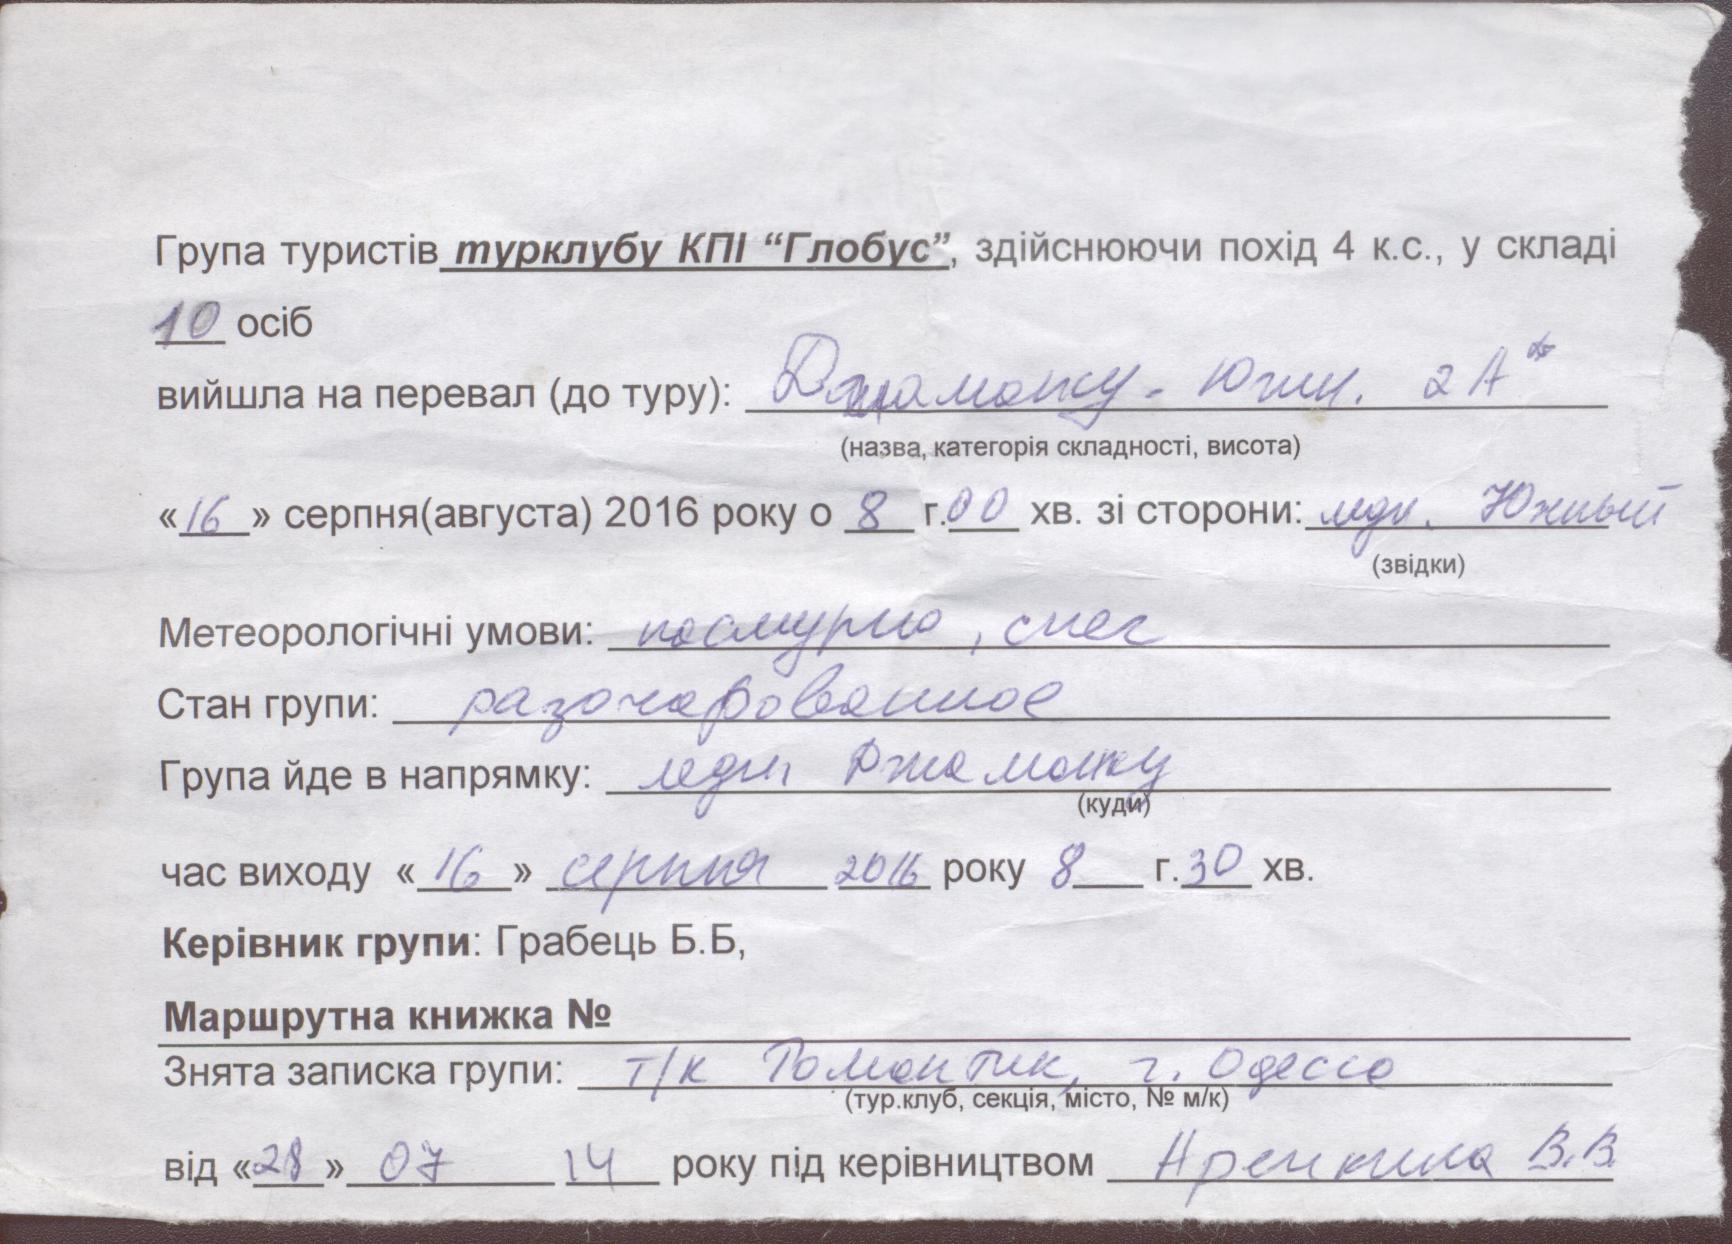 Група туристів турклубу КПІ “Глобус”, здійснюючи похід 4 к.с., у складі
10 осіб
вийшла на перевал (до туру): Джаманжу - Южн. 2А*
(назва, категорія складності, висота)
«16» серпня(августа) 2016 року о 8 г.00 хв. зі сторони: лдн. Южный
(звідки)
Метеорологічні умови: пасмурно, снег
Стан групи: разочарованное
Група йде в напрямку: ледн Джаманжу
(куди)
час виходу «16» серпня 2016 року 8 г.30 хв.
Керівник групи: Грабець Б.Б,
Маршрутна книжка №
Знята записка групи: т/к Романтик, г. Одесса
(тур.клуб, секція, місто, № м/к)
від «28» 07 14 року під керівництвом В.В.